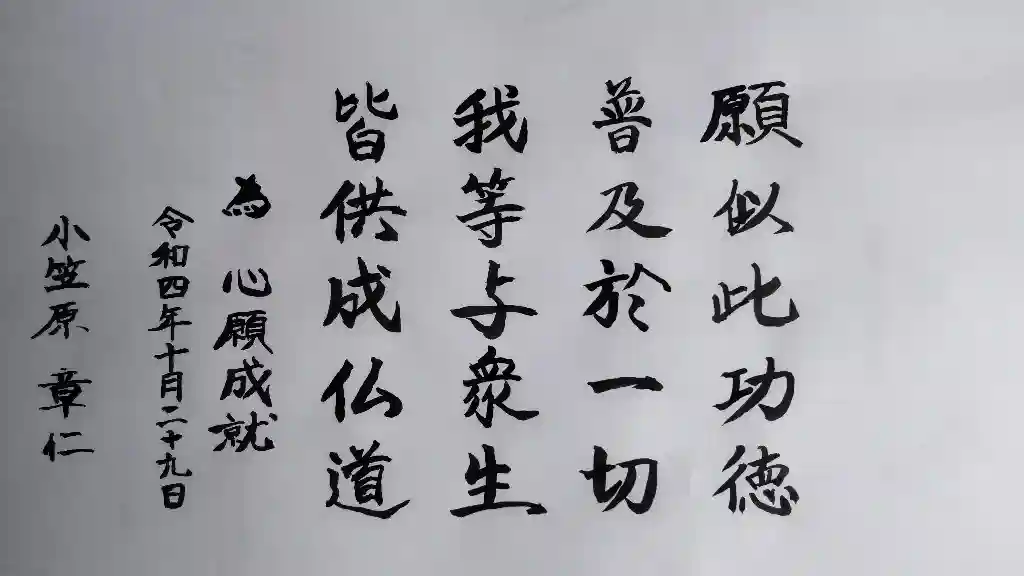 願似此功徳
普及於一切
我等与衆生
皆供成仏道
為 心願成就
令和四年十月二十九日
小笠原 章仁